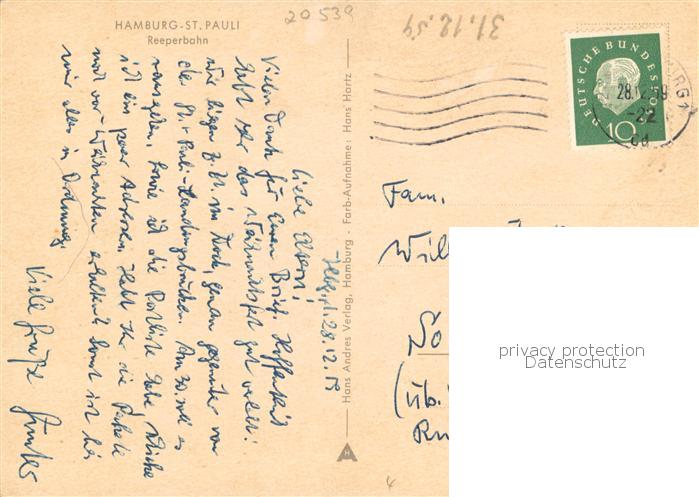 HAMBURG-ST. PAULI
Reeperbahn
20539
31.12.59
DEUTSCHE BUNDESPOST
10
28.12.59
-22
Hans Andres Verlag, Hamburg - Farb-Aufnahme: Hans Hartz
28.12.59
Liebe Eltern!
Vielen Dank für Euren Brief. Hoffentlich
habt Ihr das Weihnachtsfest gut verlebt!
Wir liegen z. Zt. im Dock, genau gegenüber von
den St. Pauli-Landungsbrücken. Am 30. soll es
rausgehen. Sowie ich die Postliste habe, schicke
ich ein paar Adressen. Habt Ihr die Pakete
noch vor Weihnachten erhalten? Sonst ist bei
mir alles in Ordnung.
Viele Grüße
Günter
Fam.
privacy protection
Datenschutz